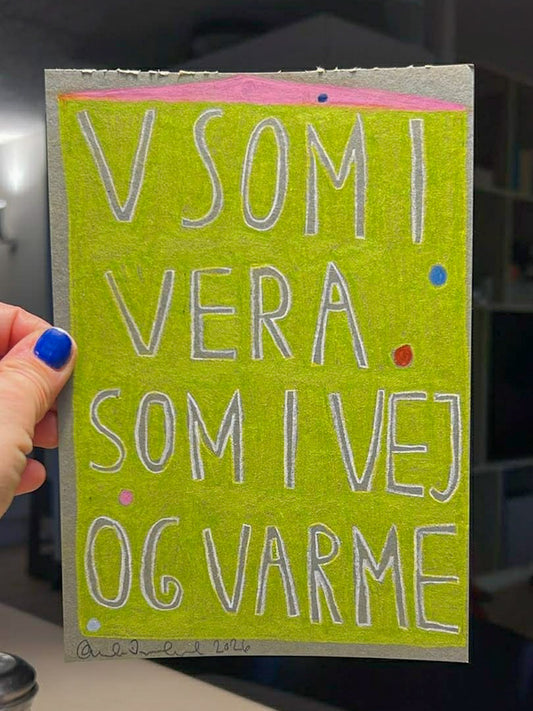 V SOM I
VERA
SOM I VEJ
OG VARME
2026